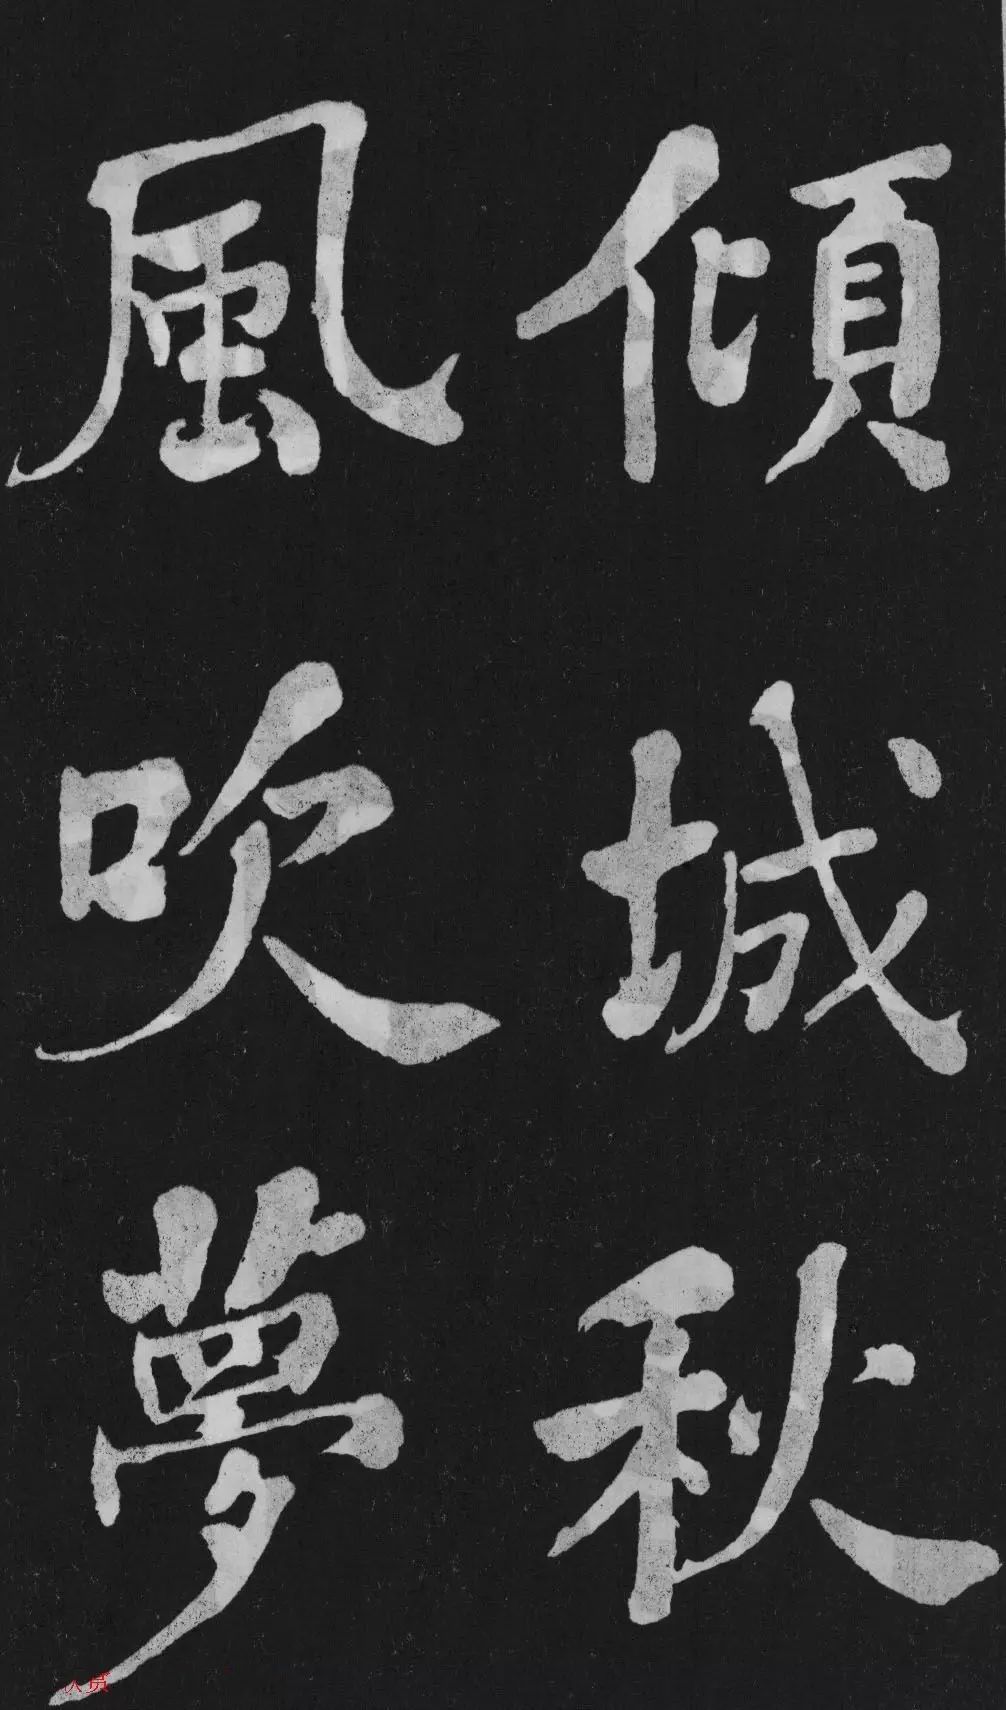 傾城秋
風吹夢